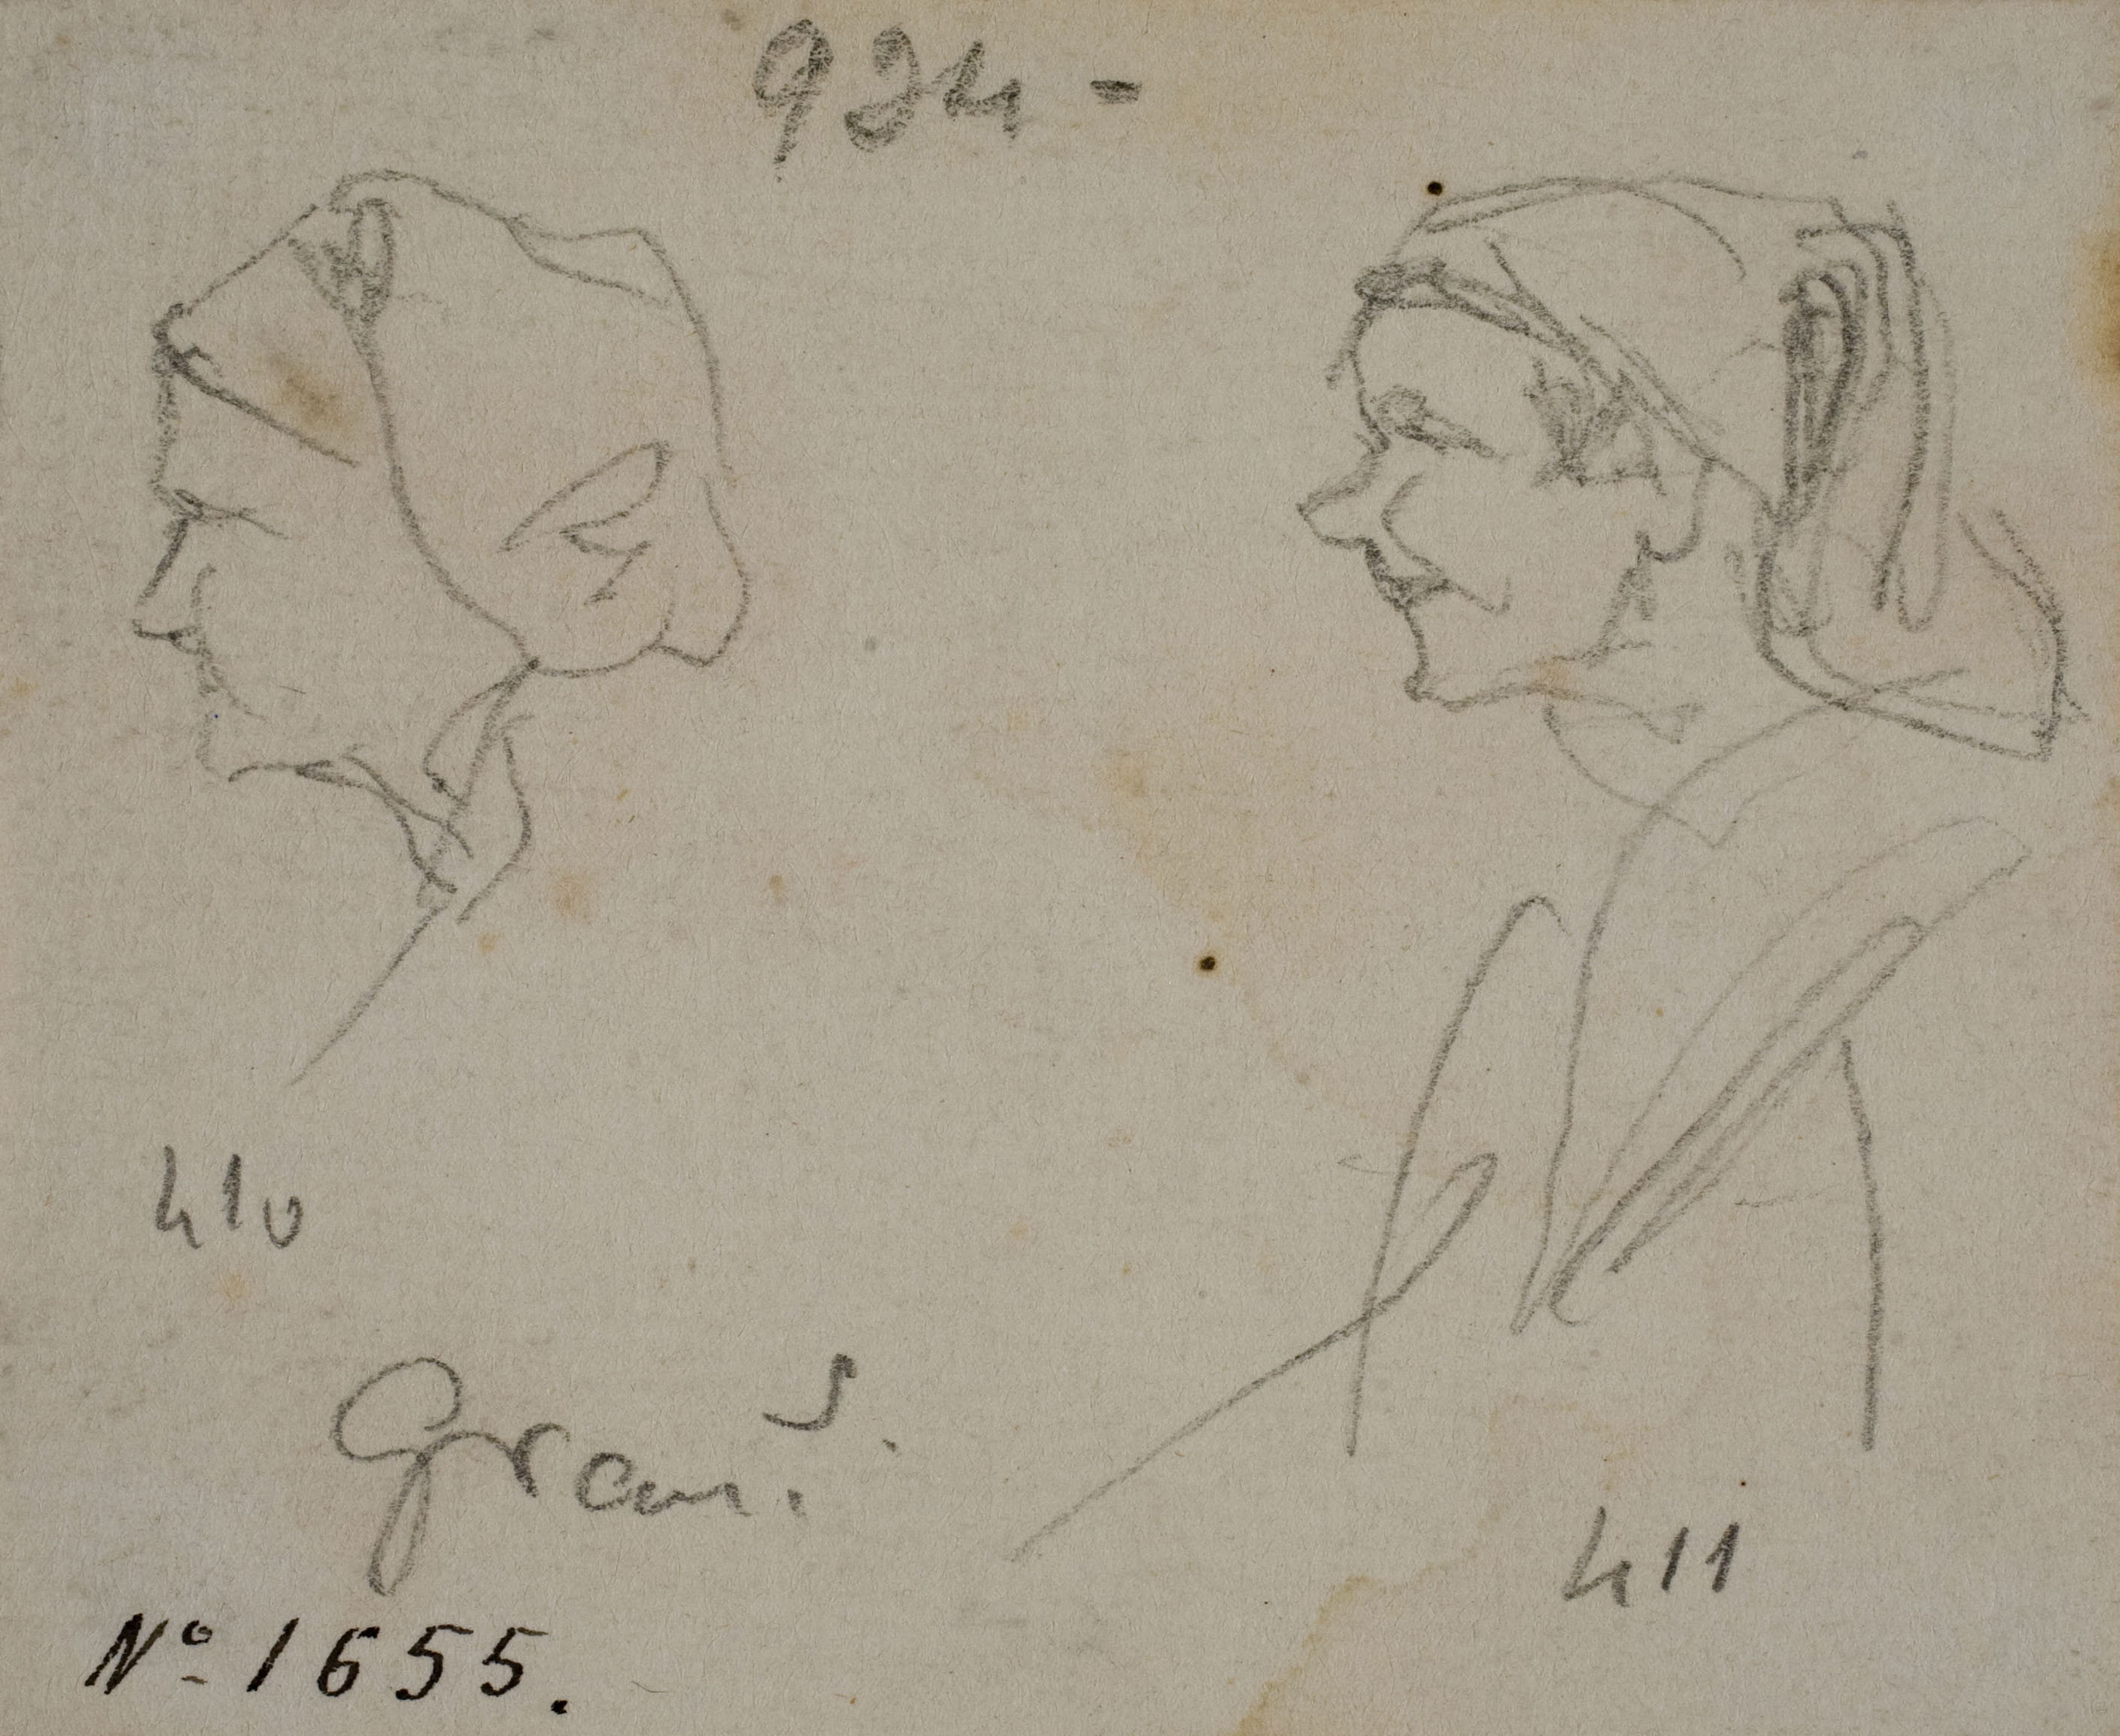 924-
410
411
Nº 1655.